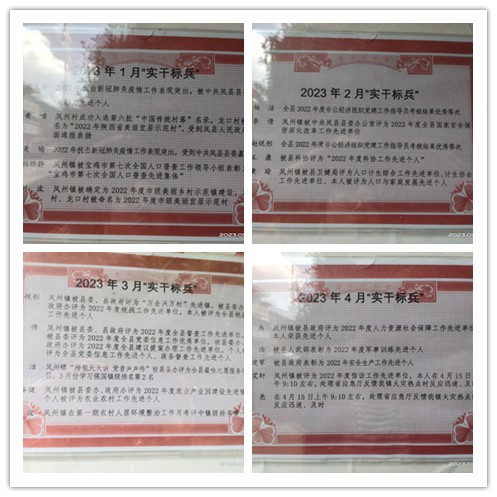 2023 年 1 月“实干标兵”
新冠肺炎疫情工作表现突出，被中共凤县县
先进个人
凤州镇成功入选第六批“中国传统村落”名录，龙口村
名为“2022年陕西省美丽宜居示范村”，受到凤县人民政
面通报表扬
2022年抗击新冠肺炎疫情工作表现突出，受到中共凤县县委嘉
凤州镇被宝鸡市第七次全国人口普查工作领导小组表彰
宝鸡市第七次全国人口普查先进集体”
波 凤州镇被确定为2022年度市级美丽乡村示范镇建设，
村、龙口村被命名为2022年度市级美丽宜居示范村
2023 年 2 月“实干标兵”
洁 全县2022年度非公经济组织党建工作指导员考核结果优秀等次
李 倩 凤州镇被中共凤县县委办公室评为2022年度全县国家安全保
密深化改革工作先进单位
赵悦彤 全县2022年度非公经济组织党建工作指导员考核结果优秀等次
王 鑫 被县科协评为“2022年度科协工作先进个人”
凤州镇被县卫健局评为人口计生综合工作先进单位、计生协会
工作先进单位。本人被评为人口与家庭发展先进个人
2023 年 3 月“实干标兵”
悦彤 凤州镇被县委、县政府评为“万企兴万村”先进镇，被县委办
府办评为2022年度统战工作先进单位，本人被评为统战工
进个人
倩 凤州镇被县委、县政府评为2022年度全县督查工作先进单位、
县委办评为2022年度全县党委信息工作优秀单位、被县委办
府办评为2022年度全县建议提案办理工作先进单位。本人
评为全县党委信息工作先进个人、政务督查工作先进个人
洁 凤州镇
，3月份学习强国镇级排名第2名
凤州镇被县政府办评为2022年度农业产业园建设先进镇
人被评为农业农村工作先进个人
凤州镇在第一期农村人居环境整治工作月考评中镇级排名
2023 年 4 月“实干标兵”
凤州镇被县政府评为2022年度人力资源社会保障工作先进单位
人荣获先进个人
被县人武部表彰为2022年度军事训练先进个人
被县政府表彰为2022年安全生产工作先进个人
轩 凤州镇被评为2022年度信访工作先进单位，本人在4月15日
午9:10左右，处理省应急厅反馈我镇火灾热点时反应迅速、及
磊 在4月15日上午9:10左右，处理省应急厅反馈我镇火灾热点时
反应迅速、及时